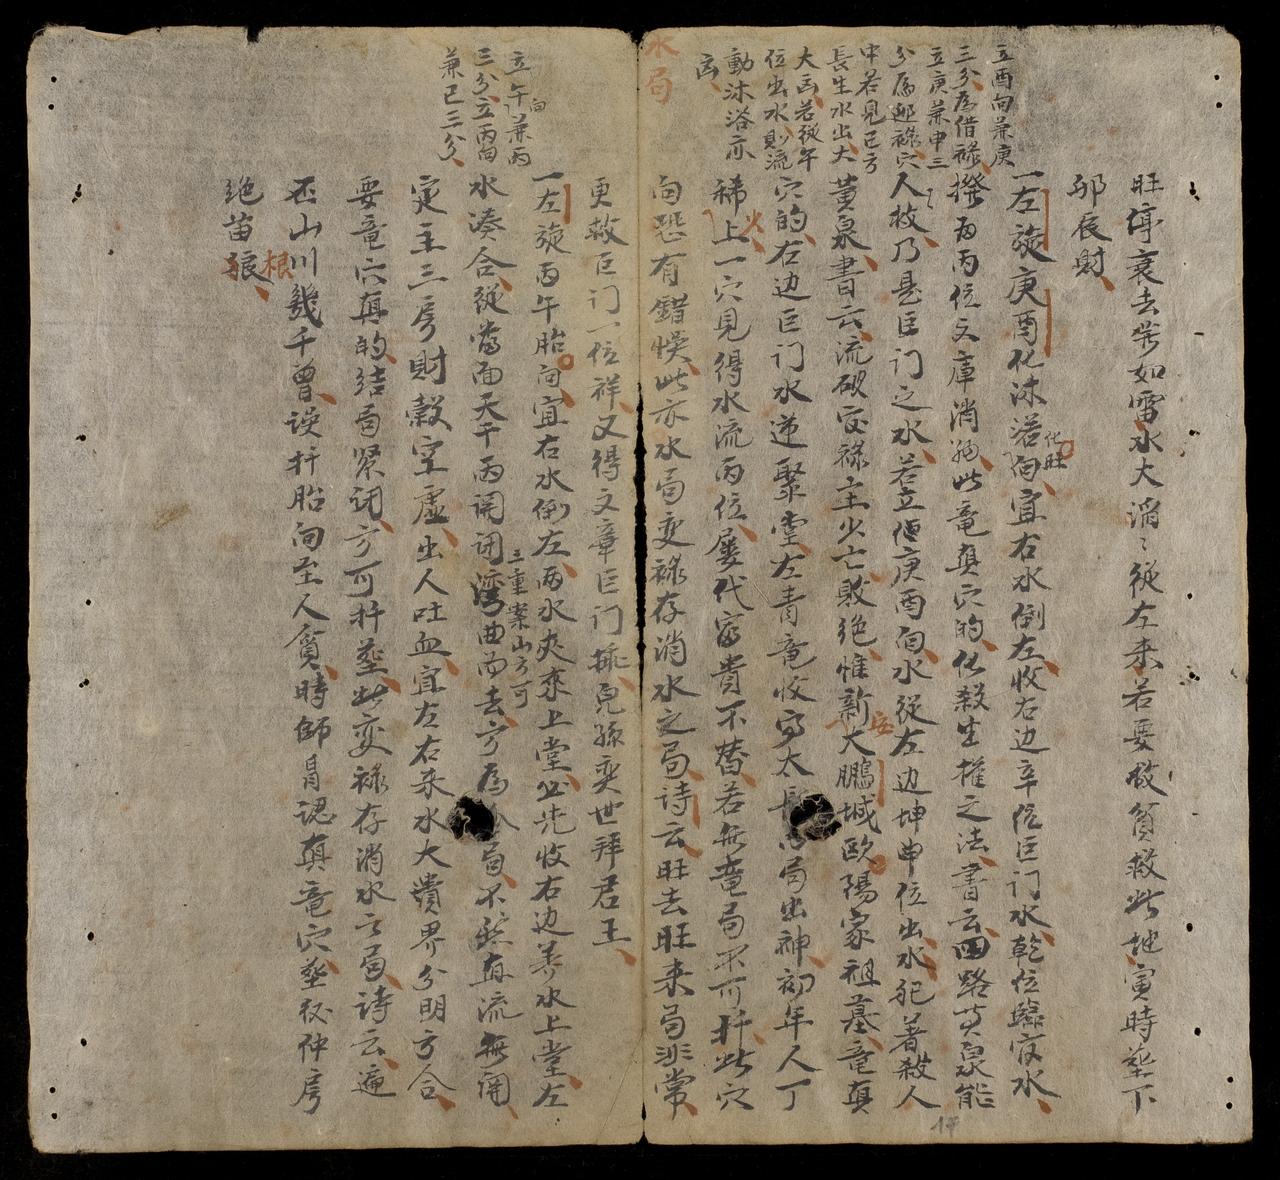 水局
旺停衰去岩如雷水大消々從左来若要救貧救此地寅時塟下
邜辰財
立酉向兼庚
三分為借禄
立庚兼申三
分為邪禄穴
中若見巳方
長生水出大
大凶若從午
位出水則流
動沐浴亦
凶
一左旋庚酉化沐浴向宜右水倒左收右边辛位巨门水乾位臨官水
化旺
撥而丙位文庫消納此竜真穴的化殺生權之法書云四路黄泉能
人救乃是巨门之水若立但庚酉向水從左边坤申位出水犯着殺人
黄泉書云流破官禄主少亡敗绝惟新大鵬城欧陽家祖墓竜真
安
穴的右边巨门水逆聚堂左青竜收局出神初年人丁
稀上一穴見得水流丙位屡代富貴不替若無竜局不可扦此穴
火
向恐有錯悞此亦水局变禄存消水之局诗云旺去旺来局非常
更救巨门一位祥又得文章巨门揷皃孫奕世拜君王
立午向兼丙
三分立丙向
兼巳三分
一左旋丙午胎向宜右水倒左两水夾来上堂必先收右边养水上堂左
水凑合從當面天干丙開闭湾曲而去方為局不然直流無闭
三重案山方可
定主二房財穀空虚出人吐血宜左右来水大貴界分明方合
要竜穴真的结局紧闭方可扦塟此变禄存消水之局诗云遍
否山川幾千曾误扦胎向至人貧時師冐認真竜穴塟後仲房
绝苗根
根
17